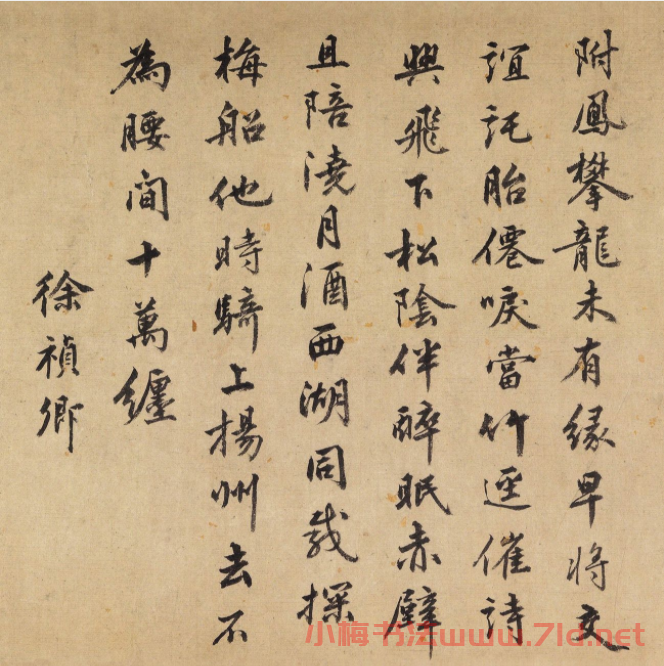 附鳳攀龍未有緣早將交
誼託胎僊唳當竹逕催詩
興飛下松陰伴醉眠赤壁
且陪澆月酒西湖同載探
梅船他時騎上揚州去不
為腰間十萬纏
徐禎卿
小梅书法www.7ld.net